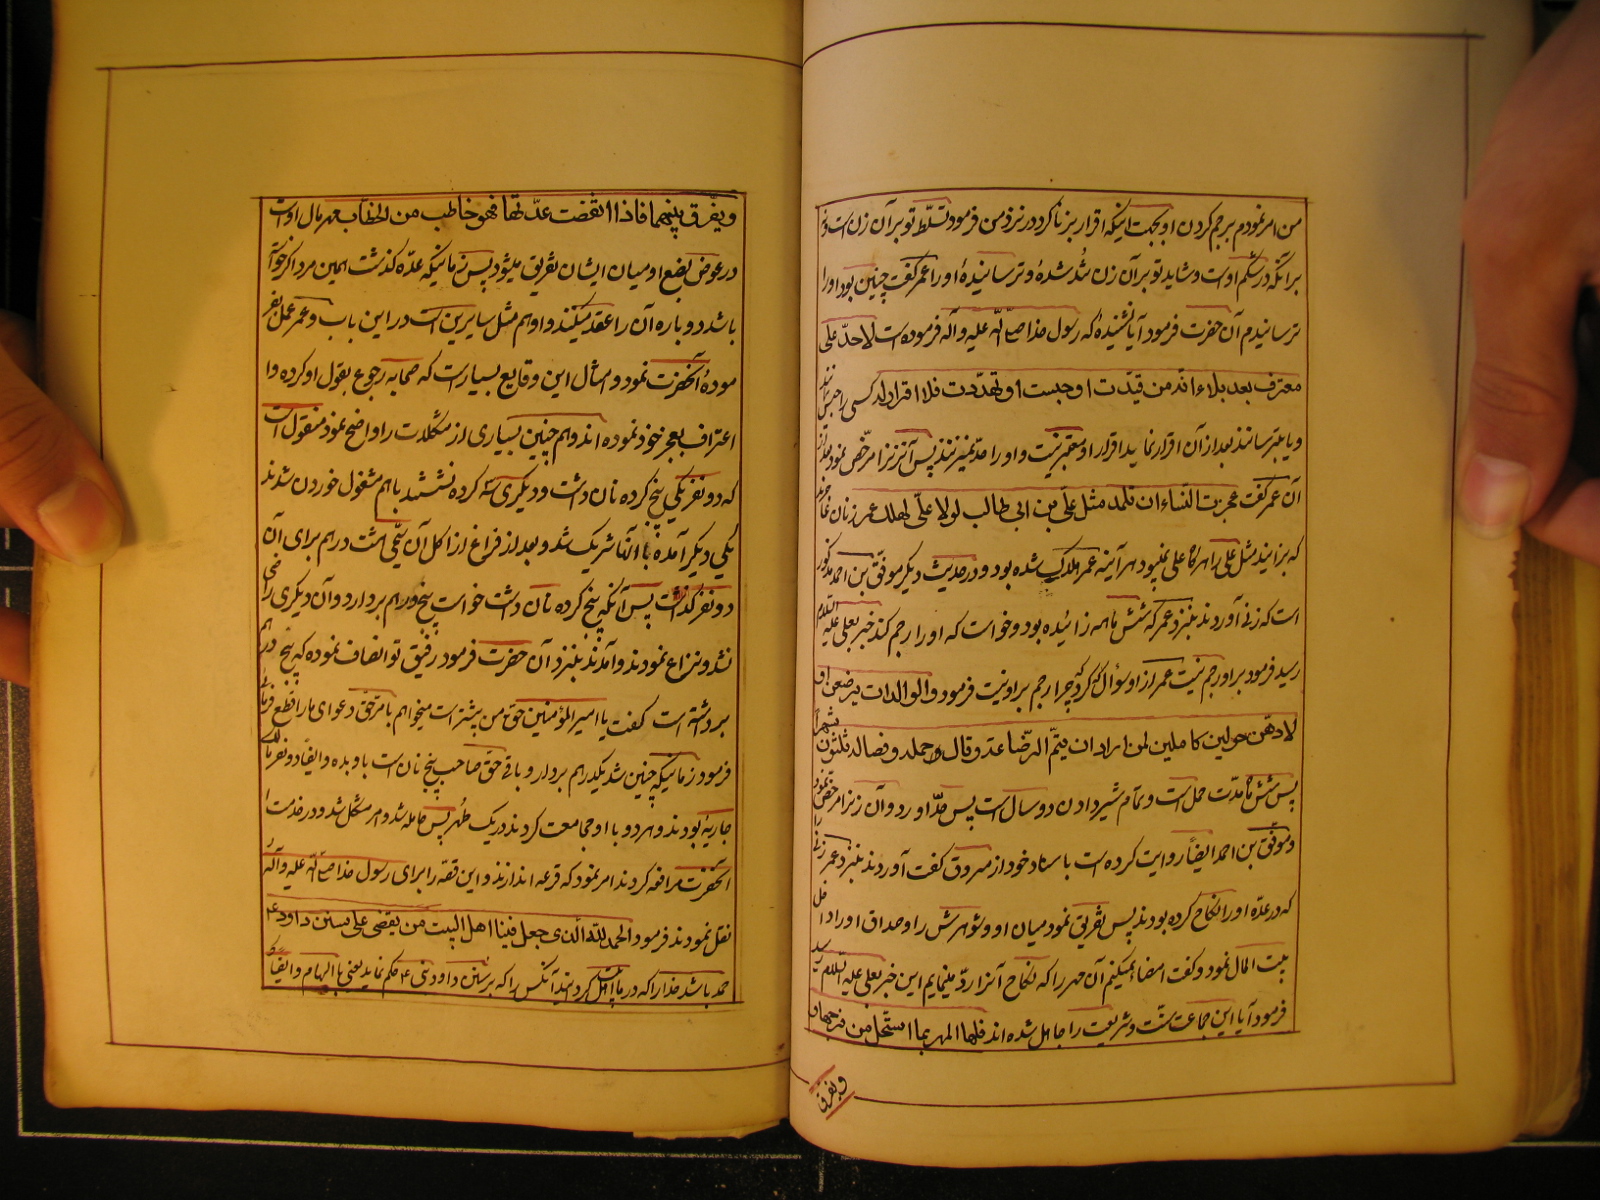 من امر نمودم برجم کردن او بجهت اینکه اقرار بزنا کرد در نزد من فرمود تسلّط تو بر آن زن است و نه
بر آنکه در شکم اوست و شاید تو بر آن زن تند شدهٔ و ترسانیدهٔ او را عمر گفت چنین بود او را
ترسانیدم آن حضرت فرمود آیا نشنیدهٔ که رسول خدا صلّی اللّه علیه و آله فرموده است لا حدّ علی
معترف بعد بلاء انّه من قیّدت او حبست او تهدّدت فلا اقرار له کسی را حبس نمایند
و یا بترسانند بعد از آن اقرار نماید اقرار او معتبر نیست و او را حدّ نمیزنند پس آنزنرا مرخّص نمود بعد از
آن عمر گفت عجزت النّساء ان تلد مثل علیّ بن ابی طالب لولا علیّ لهلک عمر زنان عاجزند
که بزایند مثل علی را هرگاه علی نمیبود هر آینه عمر هلاک شده بود و در حدیث دیگر موفق بن احمد مذکور
است که زنی آوردند بنزد عمر که شش ماهه زائیده بود و خواست که او را رجم کند خبر بعلی علیه السّلام
رسید فرمود بر او رجم نیست عمر از او سؤال کرد که چرا رجم بر او نیست فرمود و الوالدات یرضعن او
لادهنّ حولین کاملین لمن اراد ان یتمّ الرّضاعة و قال و حمله و فصاله ثلثون شهراً
پس شش ماه مدّت حمل است و تمام شیر دادن دو سال است پس حدّ او رد و آن زنرا مرخّص نمود
و موفّق بن احمد ایضاً روایت کرده است باسناد خود از مسروق گفت آوردند بنزد عمر زنی را
که در عدّه او را نکاح کرده بودند پس تفریق نمود میان او و شوهرش را و صداق او را داخل
بیت المال نمود و گفت امضاء نمیکنم آن مهر را که نکاح آنرا ردّ مینمایم این خبر بعلی علیه السّلام رسید
فرمود آیا این جماعت سنّت و شریعت را جاهل شده اند فلها المهر بما استحلّ من فرجها و
و یفرق
و یفرّق بینهما فاذا انقضت عدّتها فهو خاطب من الخطّاب مهر مال اوست
در عوض بضع او و میان ایشان تفریق میشود پس زمانیکه عدّه گذشت همین مرد اگر خواسته
باشد دوباره آن را عقد میکند و او هم مثل سایرین است در این باب و عمر عمل بفر
مودهٔ آنحضرت نمود و امثال این وقایع بسیار است که صحابه رجوع بقول او کرده و ا
اعتراف بعجز خود نموده اند و هم چنین بسیاری از مشکلات را واضح نمود منقول است
که دو نفر یکی پنج کرده نان داشت و دیگری سه کرده نشستند با هم مشغول خوردن شدند
یکی دیگر آمده با آنها شریک شد و بعد از فراغ از اکل آن سیّمی هشت درهم برای آن
دو نفر گذاشت پس آنکه پنج کرده نان داشت خواست پنج درهم بردارد و آن دیگری راضی
نشد و نزاع نمودند و آمدند بنزد آن حضرت فرمود رفیق تو انصاف نموده که پنج درهم
برداشته است گفت یا امیر المؤمنین حق من بیشتر است میخواهم بامر حقّ دعوای ما را قطع فرمائی
فرمود زمانیکه چنین شد یکدرهم بردار و باقی حق صاحب پنج نان است باو بده و ایضاً دو نفر مالک
جاریهٔ بودند و هر دو با او مجامعت کردند در یک طُهر پس حامله شد و امر مشکل شد و در خدمت
آنحضرت مرافعه کردند امر نمود که قرعه اندازند و این قصّه را برای رسول خدا صلّی اللّه علیه و آله
نقل نمودند فرمود الحمد للّه الّذی جعل فینا اهل البیت من یقضی علی سنن داود ع
حمد باشد خدا را که در ما اهل بیت گردانید آنکس را که بر سنن داود نبی ع حکم نماید یعنی بالهام و ایضاً